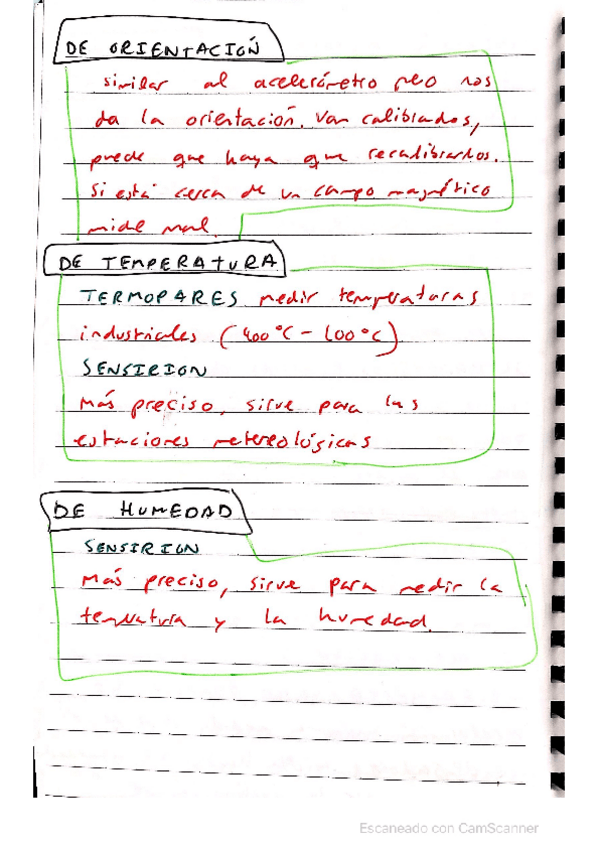 DE ORIENTACIÓN
similar al acelerómetro pero nos
da la orientación. Van calibrados,
puede que haya que recalibrarlos.
Si está cerca de un campo magnético
mide mal.
DE TEMPERATURA
TERMOPARES medir temperaturas
industriales (400°C - 600°C)
SENSIRION
Más preciso, sirve para las
estaciones metereológicas
DE HUMEDAD
SENSIRION
Más preciso, sirve para medir la
temperatura y la humedad.
Escaneado con CamScanner